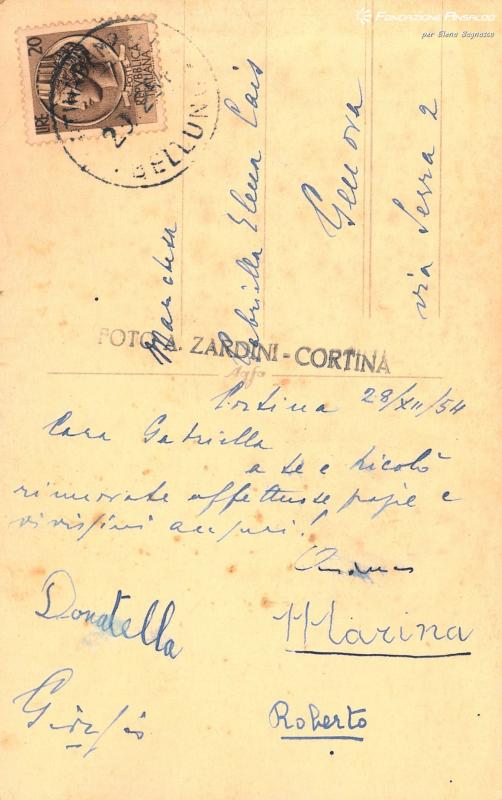 FONDAZIONE ANSALDO
per Elena Bagnasco
LIRE 20
REPVBBLICA
ITALIANA
BELLUNO
Marchesa
Gabriella Elena Cais
Genova
via Serra 2
FOTO ZARDINI - CORTINA
Agfa
Cortina 28/XII/54
Cara Gabriella
a te e Nicolò
rinnovate affettuose e
vivissimi auguri!
Donatella
Marina
Giorgio
Roberto